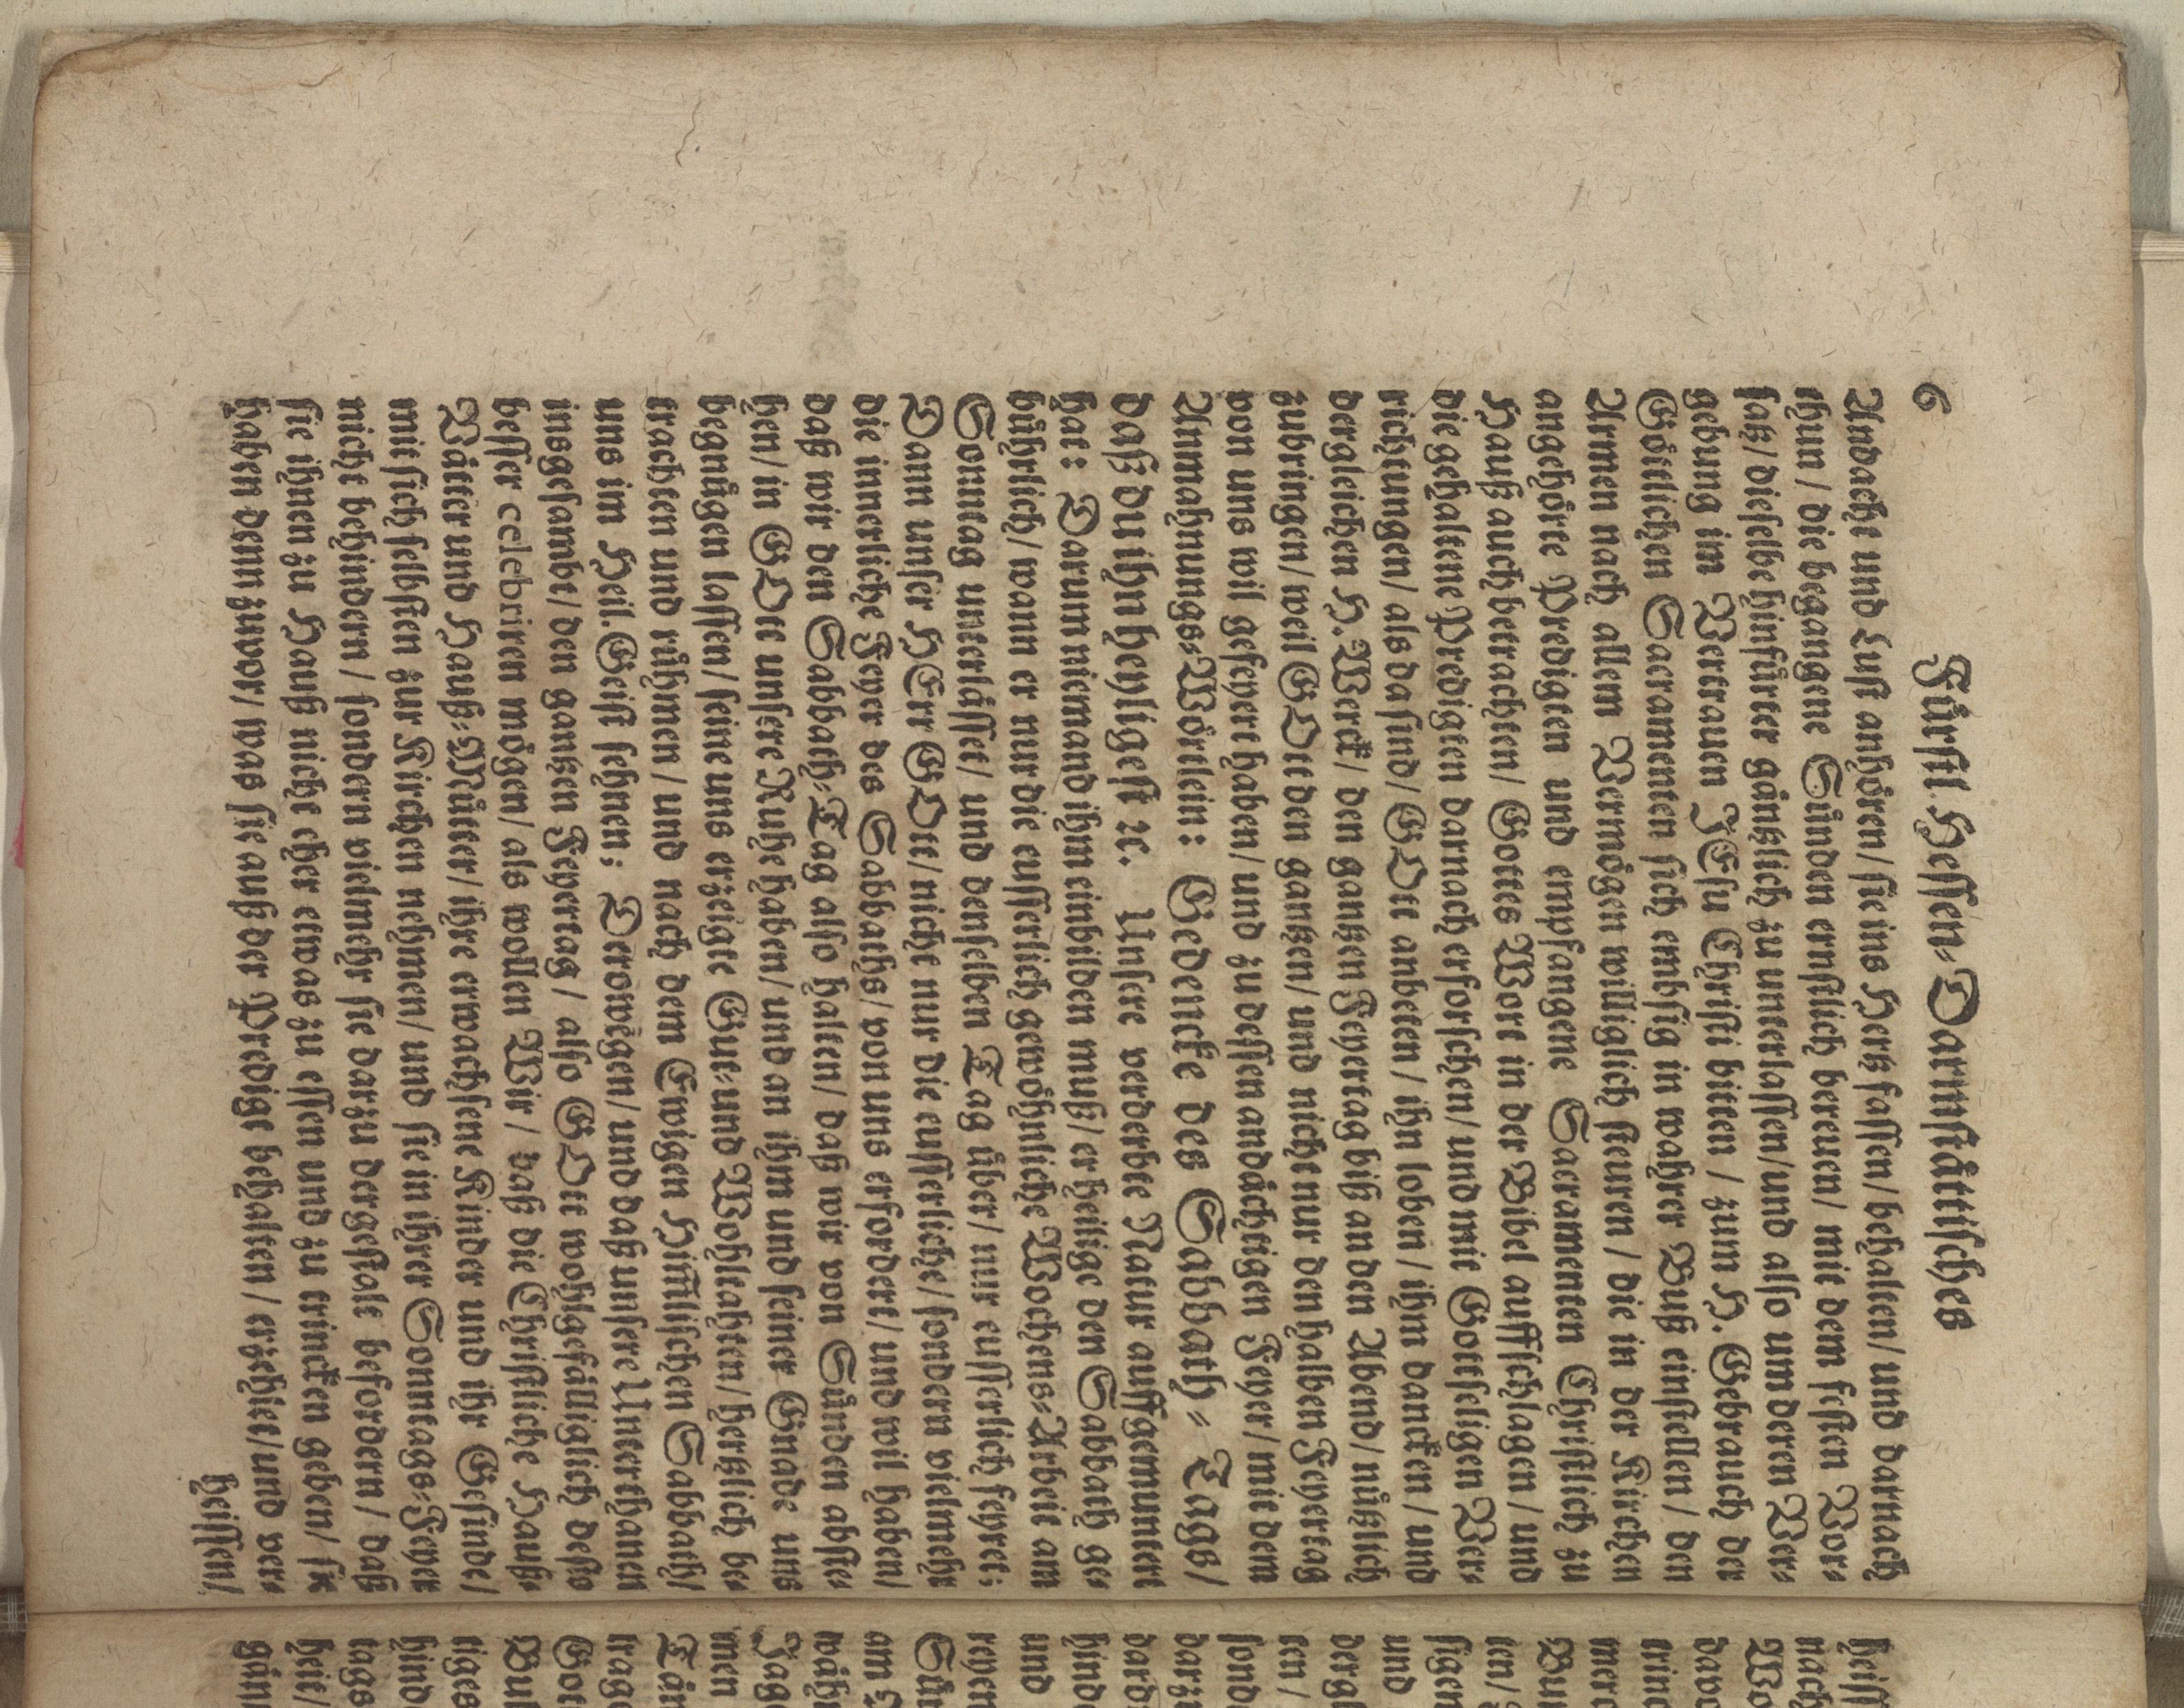 6 Fürstl. Hessen-Darmstättisches
Andacht und Lust anhören/ sie ins Hertz fassen/ behalten/ und darnach
thun/ die begangene Sünden ernstlich bereuen/ mit dem festen Vor-
satz/ dieselbe hinfürter gäntzlich zu unterlassen/ und also um deren Ver-
gebung im Vertrauen JEsu Christi bitten/ zum H. Gebrauch der
Göttlichen Sacramenten sich embsig in wahrer Buß einstellen/ den
Armen nach allem Vermögen williglich steuren/ die in der Kirchen
angehörte Predigten und empfangene Sacramenten Christlich zu
Hauß auch betrachten/ Gottes Wort in der Bibel auffschlagen/ und
die gehaltene Predigten darnach erforschen/ und mit Gottseligen Ver-
richtungen/ als da sind/ GOtt anbeten/ ihn loben/ ihm dancken/ und
dergleichen H. Werck/ den gantzen Feyertag biß an den Abend/ nützlich
zubringen/ weil GOtt den gantzen/ und nicht nur den halben Feyertag
von uns wil gefeyert haben/ und zu dessen andächtigen Feyer/ mit dem
Anmahnungs-Wörtlein: Gedencke des Sabbath-Tags/
daß du ihn heyligest ꝛc. Unsere verderbte Natur auffgemuntert
hat: Darum niemand ihm einbilden muß/ er heilige den Sabbath ge-
bührlich/ wann er nur die eusserlich gewöhnliche Wochens-Arbeit am
Sonntag unterlässet/ und denselben Tag über/ nur eusserlich feyret:
Dann unser HErr GOtt/ nicht nur die eusserliche/ sondern vielmehr
die innerliche Feyer des Sabbaths/ von uns erfordert/ und wil haben/
daß wir den Sabbath-Tag also halten/ daß wir von Sünden abste-
hen/ in GOtt unsere Ruhe haben/ und an ihm und seiner Gnade uns
begnügen lassen/ seine uns erzeigte Gut- und Wohlthaten/ hertzlich be-
trachten und rühmen/ und nach dem Ewigen Him̃lischen Sabbath/
uns im Heil. Geist sehnen: Derowegen/ und daß unsere Unterthanen
insgesambt/ den gantzen Feyertag/ also GOtt wohlgefälliglich desto
besser celebriren mögen/ als wollen Wir/ daß die Christliche Hauß-
Vätter und Hauß-Mütter/ ihre erwachsene Kinder und ihr Gesinde/
mit sich selbsten zur Kirchen nehmen/ und sie in ihrer Sonntags-Feyer
nicht behindern/ sondern vielmehr sie darzu dergestalt befordern/ daß
sie ihnen zu Hauß nicht eher etwas zu essen und zu trincken geben/ sie
haben denn zuvor/ was sie auß der Predigt behalten/ erzehlet/ und ver-
heissen/